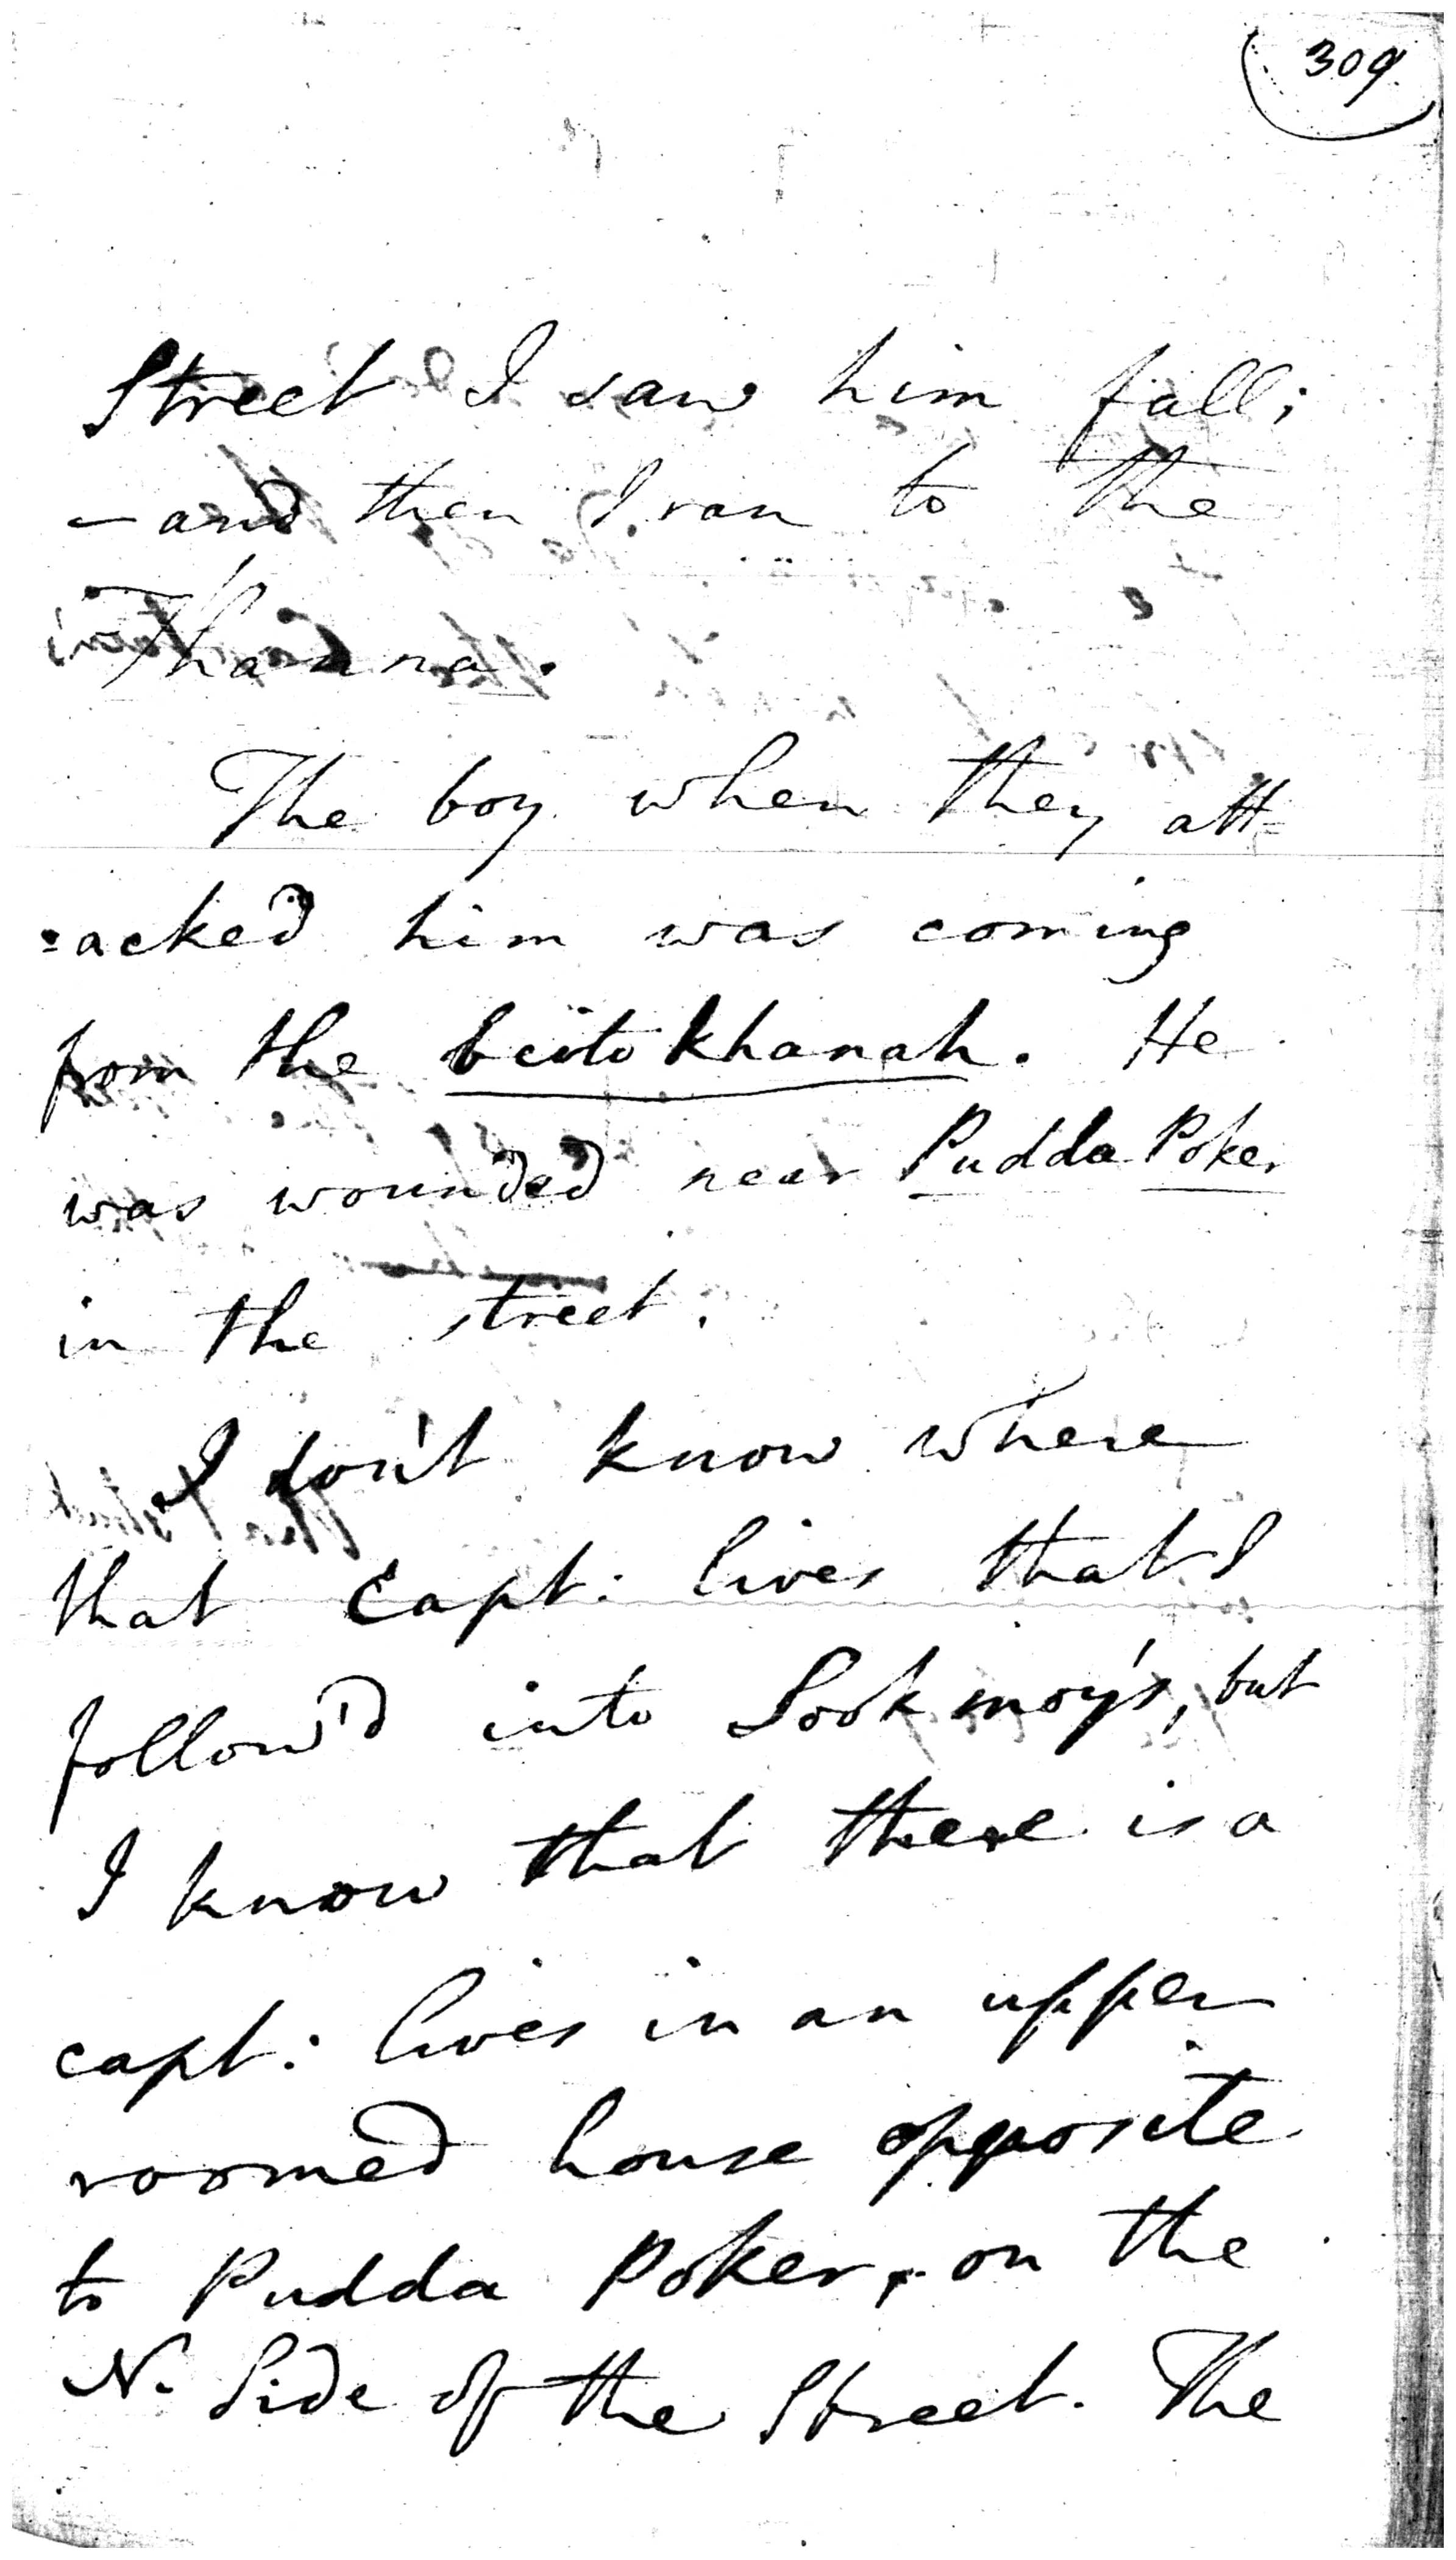 309.
Street I saw him fall;
– and then I ran to the
Thanna.
The boy when they att=
=acked him was coming
from the beito khanah. He
was wounded near Pudda Poker
in the street.
I don't know where
that Capt: lives that I
follow'd into Sookmoy's, but
I know that there is a
capt: lives in an upper
roomed house opposite
to Pudda Poker, on the
N. Side of the Street. The